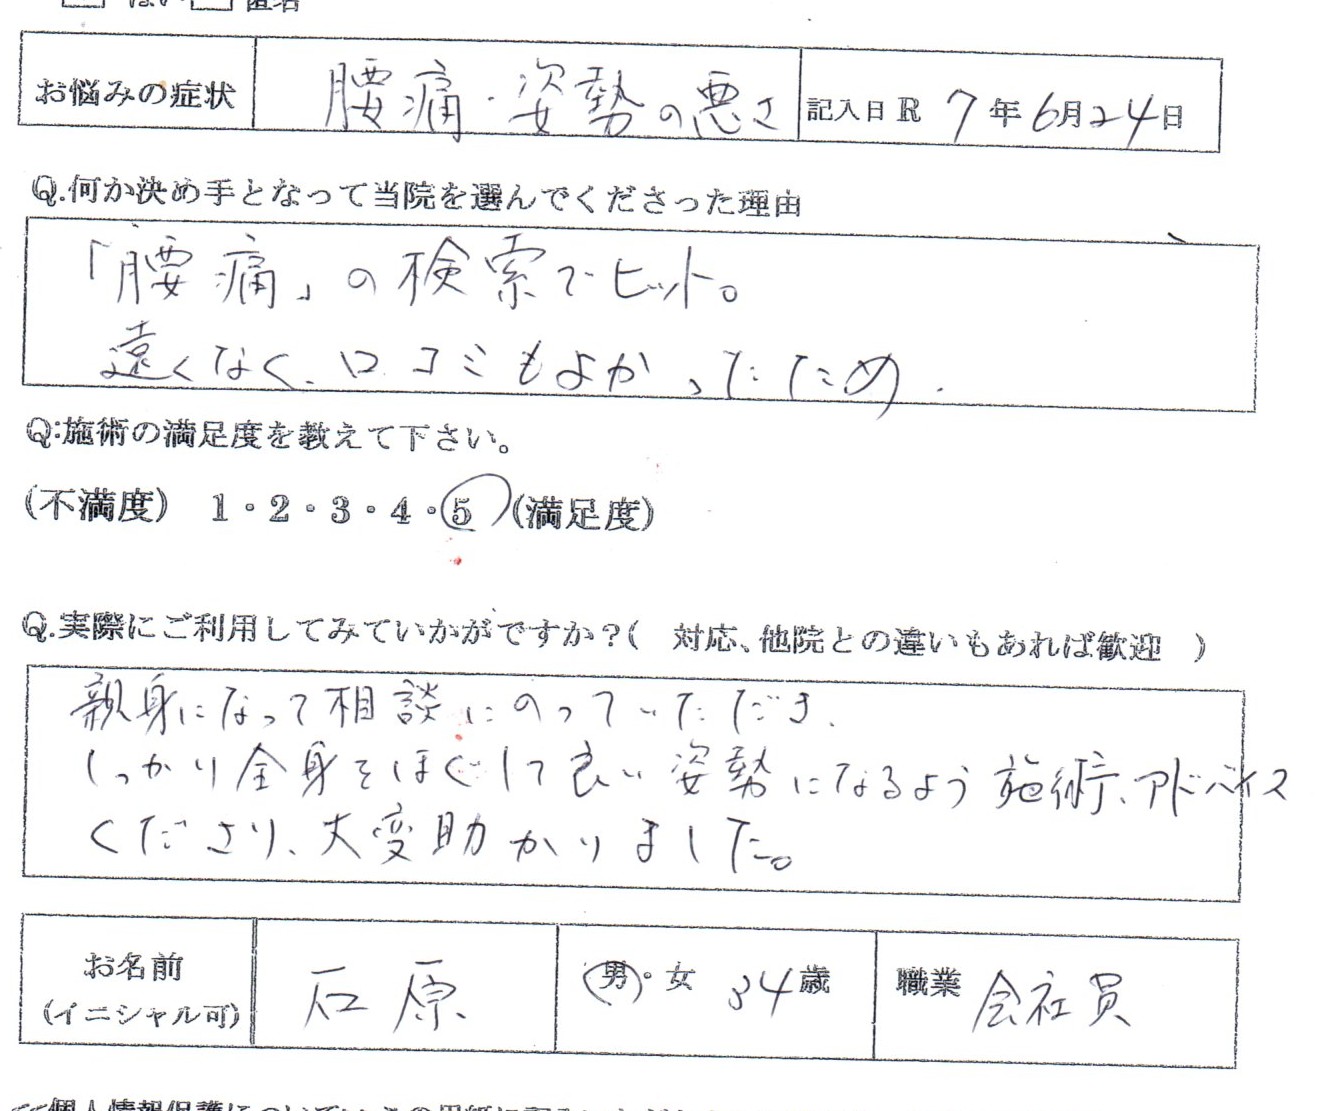 はい 匿名
お悩みの症状 腰痛・姿勢の悪さ 記入日 R 7年6月24日
Q.何か決め手となって当院を選んでくださった理由
「腰痛」の検索でヒット。
遠くなく、口コミもよかったため.
Q:施術の満足度を教えて下さい。
(不満度) 1・2・3・4・5 (満足度)
Q.実際にご利用してみていかがですか?( 対応、他院との違いもあれば歓迎 )
親身になって相談にのっていただき、
しっかり全身をほぐして良い姿勢になるよう施術、アドバイス
くださり、大変助かりました。
お名前 石原 男・女 34歳 職業 会社員
(イニシャル可)
個人情報保護について